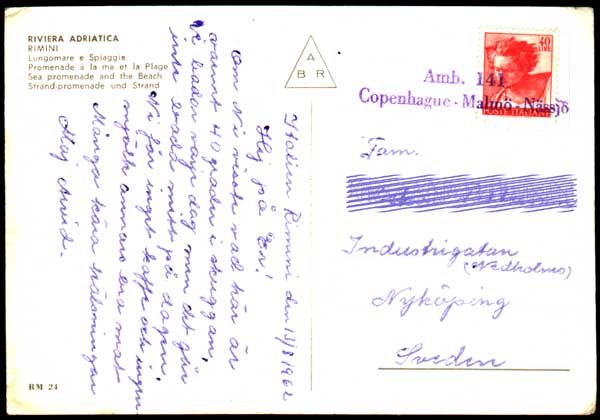 RIVIERA ADRIATICA
RIMINI
Lungomare e Spiaggia
Promenade à la me et la Plage
Sea promenade and the Beach
Strand-promenade und Strand
A
B R
40
LIRE
POSTE ITALIANE
Amb. 141
Copenhague - Malmö - Nässjö
Italien Rimini den 13/8 1962
Hej på Er!
Om Ni visste vad här är
varmt 40 grader i skuggan,
vi badar varje dag men det går
inte bada mitt på dagen.
Ni får inget kaffe och ingen
mjölk annars bra mat
Många kära hälsningar
Maj Arvid.
Fam.
Industrigatan
(Nedholms)
Nyköping
Sveden
RM 24